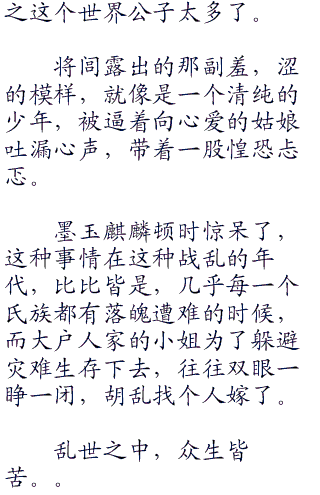 之这个世界公子太多了。
将闾露出的那副羞，涩
的模样，就像是一个清纯的
少年，被逼着向心爱的姑娘
吐漏心声，带着一股惶恐忐
忑。
墨玉麒麟顿时惊呆了，
这种事情在这种战乱的年
代，比比皆是，几乎每一个
氏族都有落魄遭难的时候，
而大户人家的小姐为了躲避
灾难生存下去，往往双眼一
睁一闭，胡乱找个人嫁了。
乱世之中，众生皆
苦。。